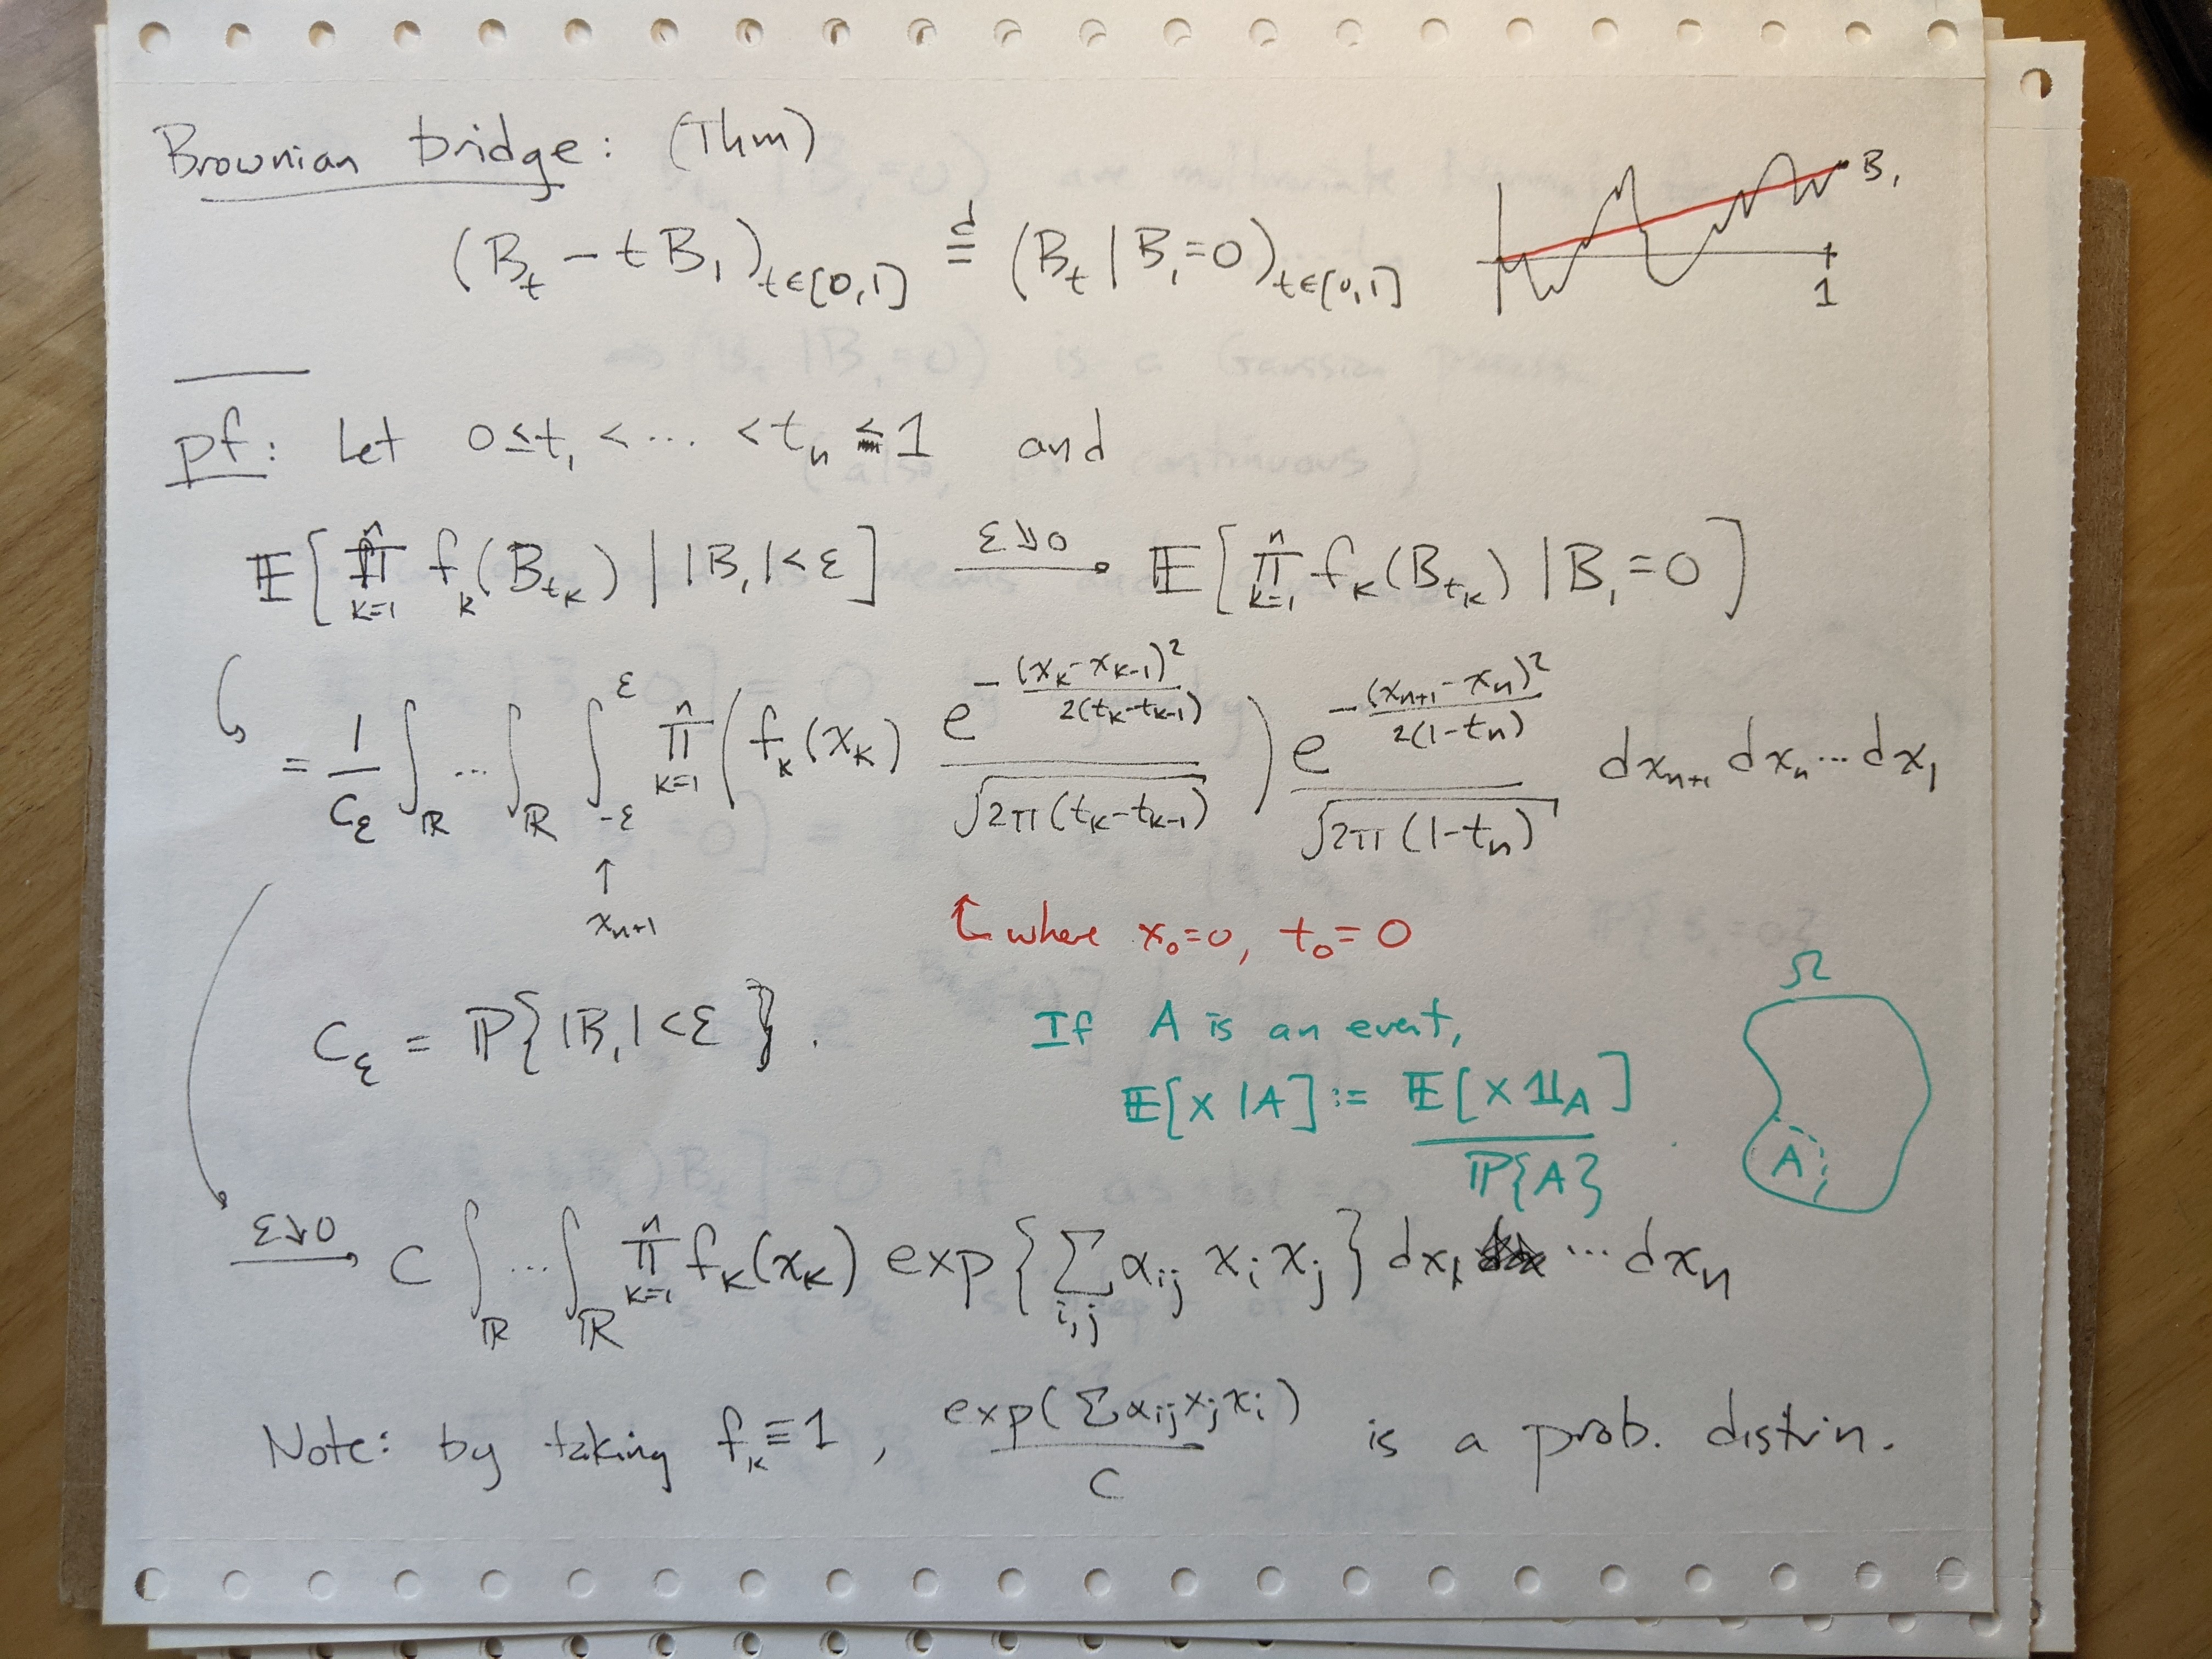 Brownian bridge: (Thm)
(B_t − tB_1)_{t∈[0,1]} =^d (B_t | B_1=0)_{t∈[0,1]}
B_1
1
pf: Let 0≤t_1 < ⋯ < t_n ≤ 1 and
𝔼[∏_{k=1}^n f_k(B_{t_k}) | |B_1|<ε] ⟶^{ε↘0} 𝔼[∏_{k=1}^n f_k(B_{t_k}) | B_1=0]
= 1/C_ε ∫_ℝ ⋯ ∫_ℝ ∫_{-ε}^{ε} ∏_{k=1}^n (f_k(x_k) e^{-(x_k-x_{k-1})²/2(t_k-t_{k-1})} / √(2π(t_k-t_{k-1}))) e^{-(x_{n+1}-x_n)²/2(1-t_n)} / √(2π(1-t_n)) dx_{n+1} dx_n ⋯ dx_1
↑
x_{n+1}
where x_0=0, t_0=0
C_ε = ℙ{|B_1|<ε}.
If A is an event,
𝔼[X|A] := 𝔼[X 𝟙_A] / ℙ{A}.
Ω
A
⟶^{ε↘0} C ∫_ℝ ⋯ ∫_ℝ ∏_{k=1}^n f_k(x_k) exp{∑_{i,j} α_{ij} x_i x_j} dx_1 ⋯ dx_n
Note: by taking f_k≡1, exp(∑α_{ij}x_jx_i) / C is a prob. distrin.